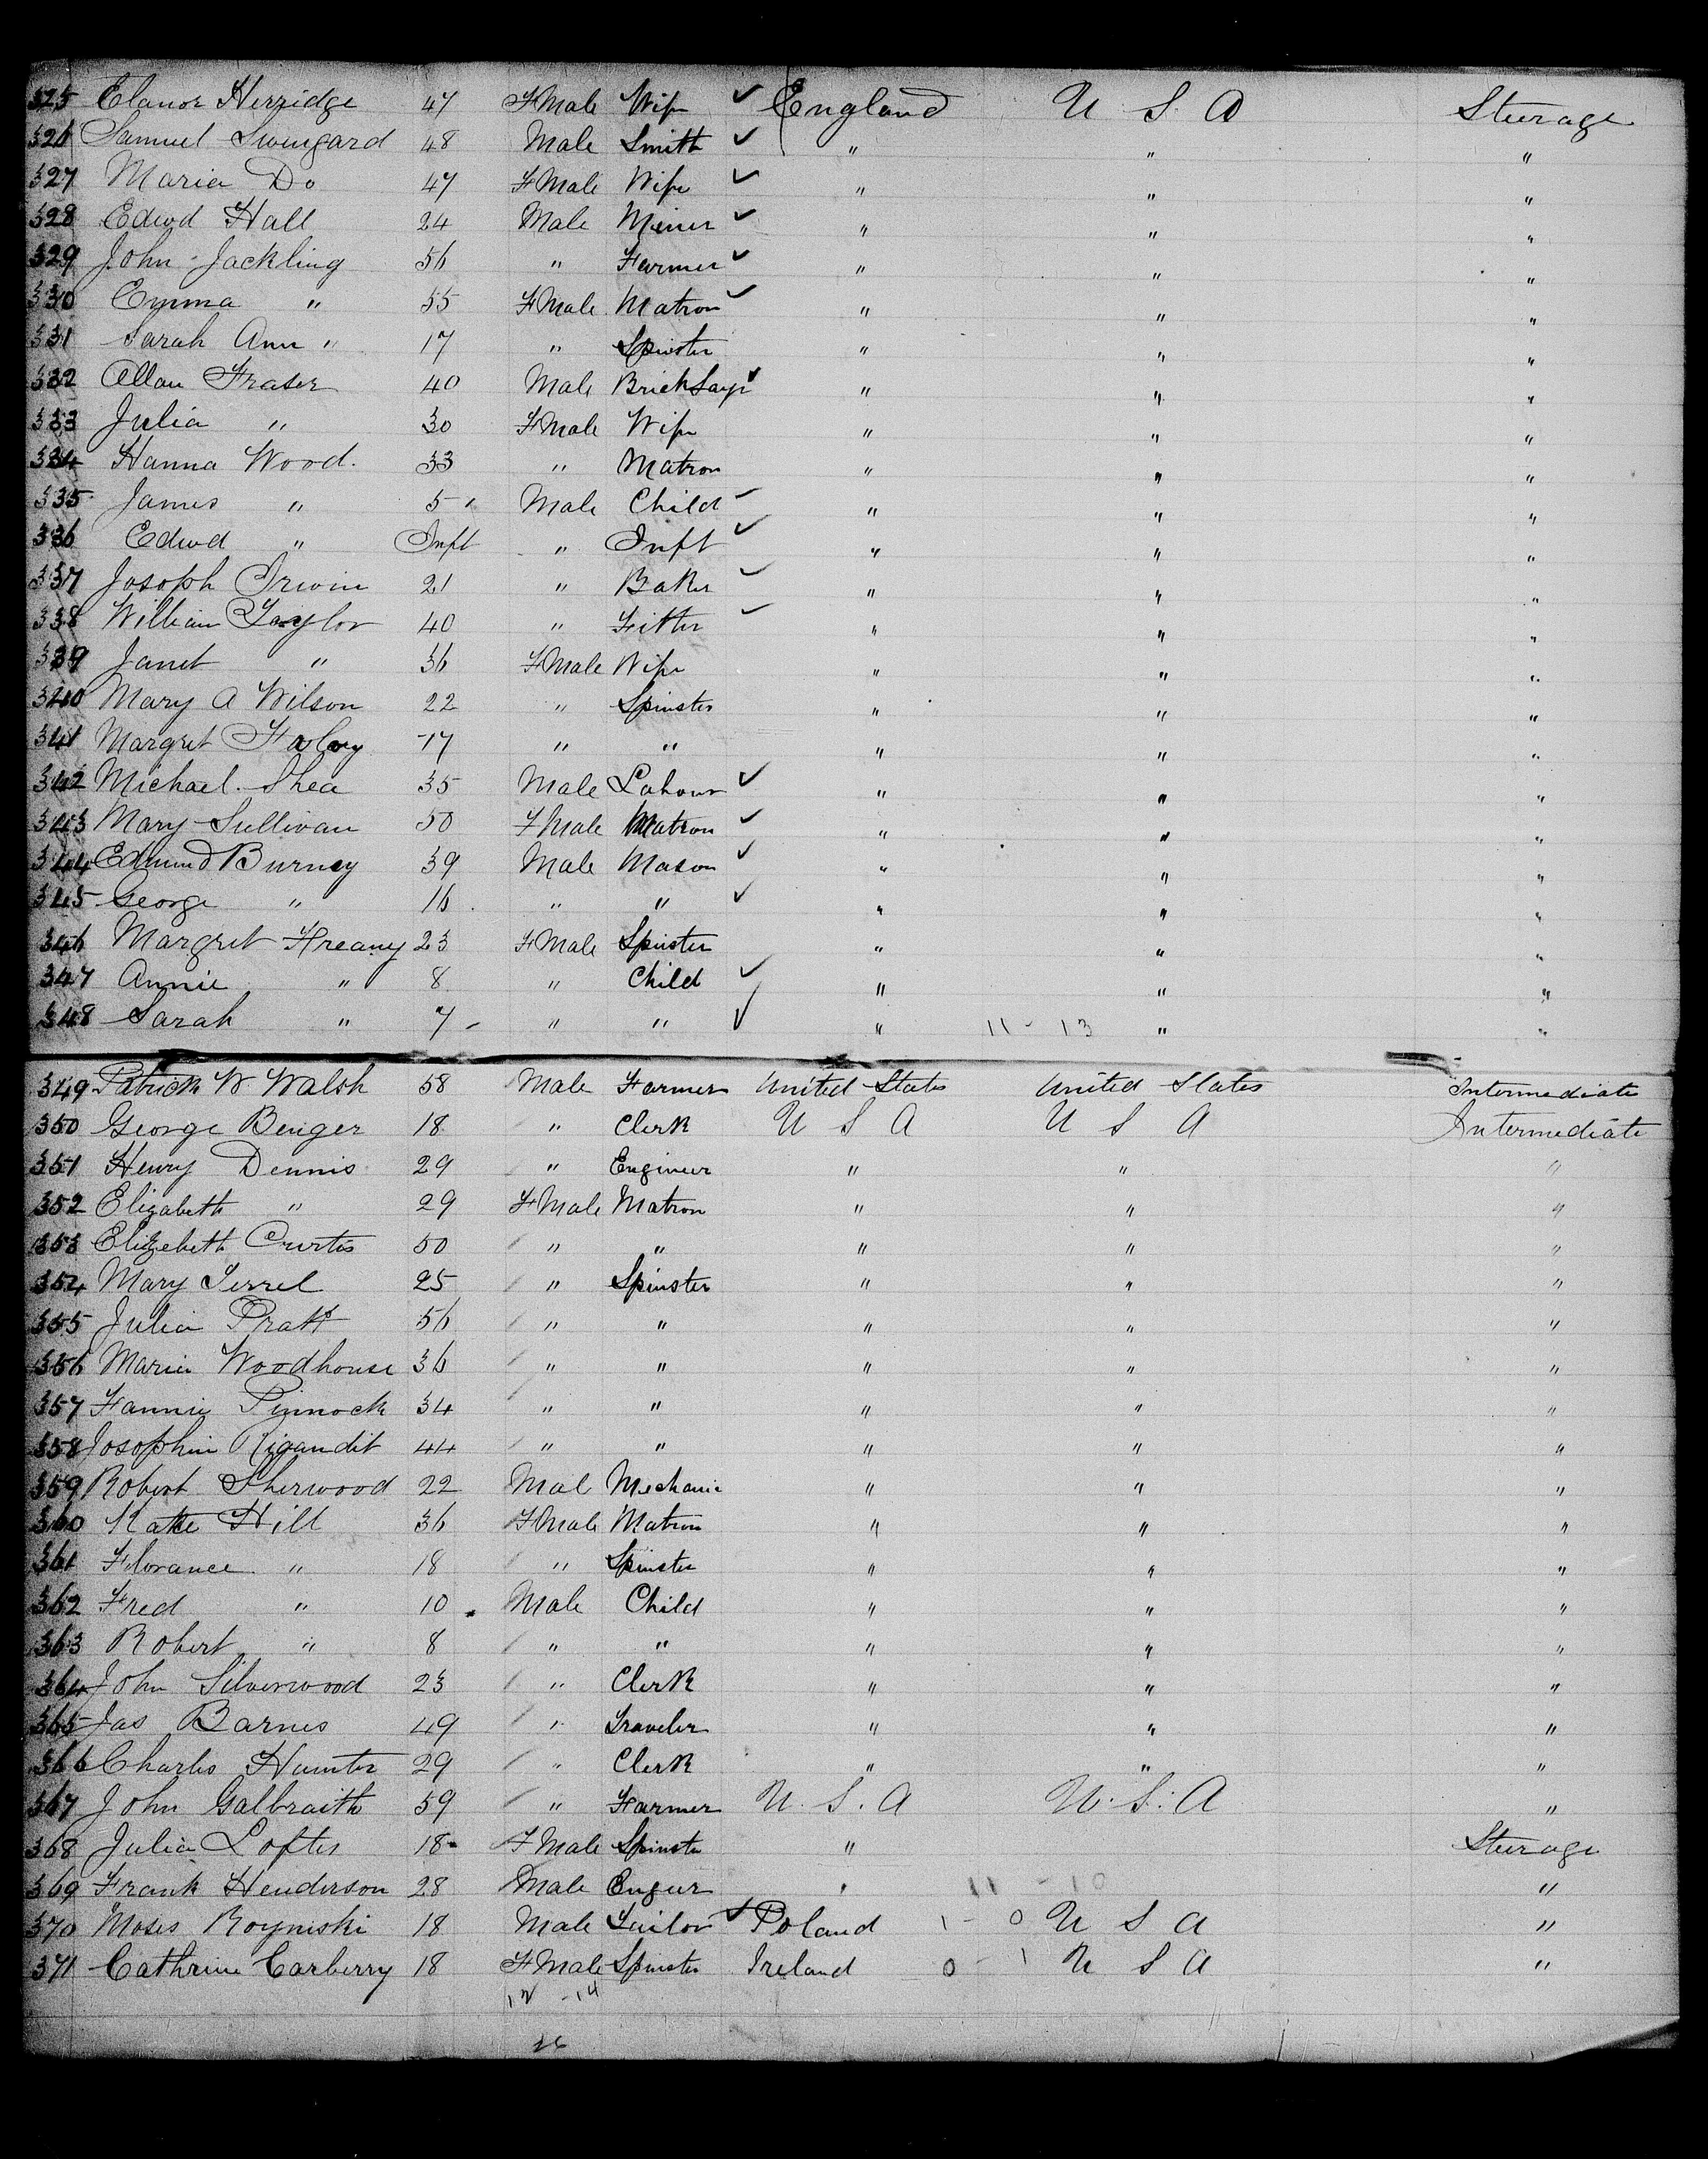 325 Elanor Herridge 47 FMale Wife ✓ England U S A Steerage
326 Samuel Swengard 48 Male Smith ✓ " " "
327 Maria Do 47 FMale Wife ✓ " " "
328 Edwd Hall 24 Male Miner ✓ " " "
329 John Jackling 56 " Farmer ✓ " " "
330 Emma " 55 FMale Matron ✓ " " "
331 Sarah Ann " 17 " Spinster " " "
332 Allan Fraser 40 Male BrickLayr ✓ " " "
333 Julia " 30 FMale Wife " " "
334 Hanna Wood. 33 " Matron " " "
335 James " 5 Male Child ✓ " " "
336 Edwd " Inft " Inft ✓ " " "
337 Joseph Irwin 21 " Baker ✓ " " "
338 William Taylor 40 " Fitter ✓ " " "
339 Janet " 36 FMale Wife " " "
340 Mary A Wilson 22 " Spinster " " "
341 Margret Foley 17 " " " " "
342 Michael Shea 35 Male Labour ✓ " " "
343 Mary Sullivan 50 FMale Matron ✓ " " "
344 Edmund Burney 39 Male Mason ✓ " " "
345 George " 16 " " ✓ " " "
346 Margret Freany 23 FMale Spinster " " "
347 Annie " 8 " Child ✓ " " "
348 Sarah " 7 " " ✓ " 11 - 13 " "
349 Patrick W Walsh 58 Male Farmer United States United States Intermediate
350 George Benger 18 " Clerk U S A U S A Intermediate
351 Henry Dennis 29 " Engineer " " "
352 Elizabeth " 29 FMale Matron " " "
353 Elizebeth Curtis 50 " " " " "
354 Mary Terrel 25 " Spinster " " "
355 Julia Pratt 56 " " " " "
356 Maria Woodhouse 36 " " " " "
357 Fannie Pinnock 34 " " " " "
358 Josephin Rigandit 44 " " " " "
359 Robert Sherwood 22 Mal Mechanic " " "
360 Kate Hill 36 FMale Matron " " "
361 Florance " 18 " Spinster " " "
362 Fred " 10 Male Child " " "
363 Robert " 8 " " " " "
364 John Silverwood 23 " Clerk " " "
365 Jas Barnes 49 " Traveler " " "
366 Charles Hunter 29 " Clerk " " "
367 John Galbraith 59 " Farmer U. S. A U. S. A "
368 Julia Loftes 18 FMale Spinster " Steerage
369 Frank Henderson 28 Male " 11 - 10 "
370 Moses Royniski 18 Male Tailor ✓ Poland 1 - 0 U S A "
371 Cathrine Carberry 18 FMale Spinster Ireland 0 - 1 U S A "
12 - 14
26